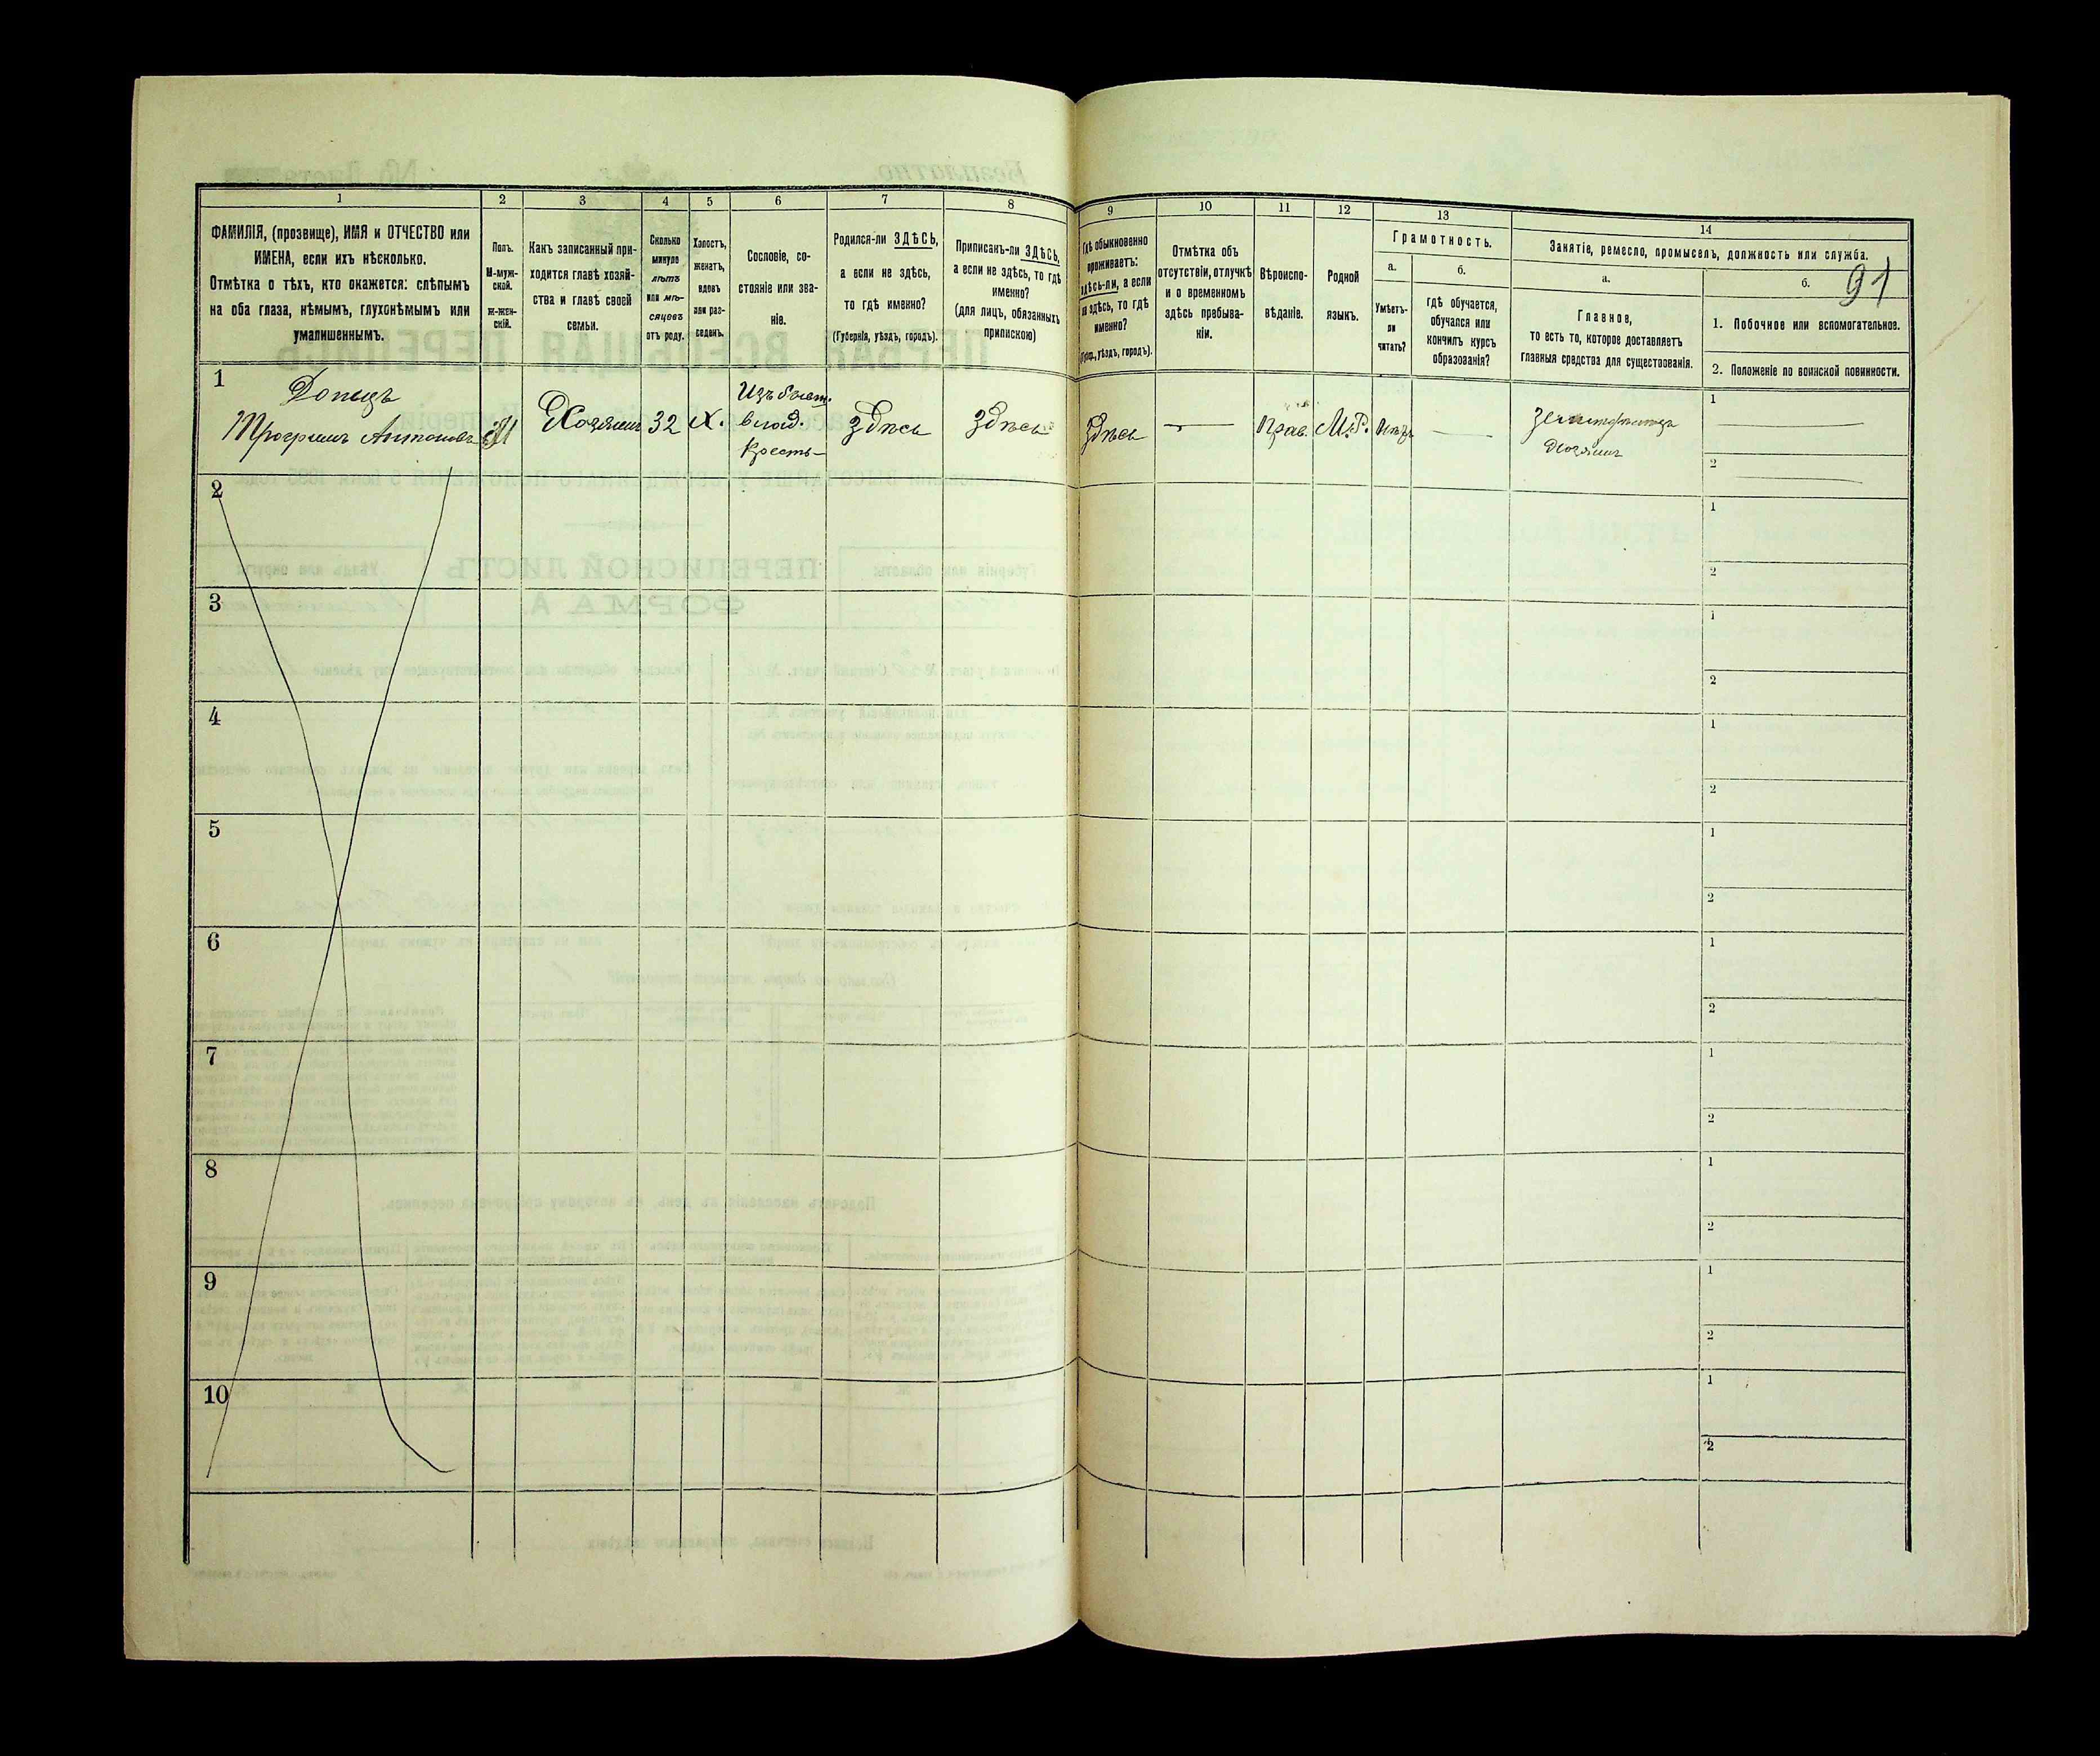 1
2
3
4
5
6
7
8
9
10
11
12
13
14
ФАМИЛІЯ, (прозвище), ИМЯ и ОТЧЕСТВО или
ИМЕНА, если ихъ нѣсколько.
Отмѣтка о тѣхъ, кто окажется: слѣпымъ
на оба глаза, нѣмымъ, глухонѣмымъ или
умалишеннымъ.
Полъ.
М-муж-
ской.
Ж-жен-
скій.
Какъ записанный при-
ходится главѣ хозяй-
ства и главѣ своей
семьи.
Сколько
минуло
лѣтъ
или мѣ-
сяцевъ
отъ роду.
Холостъ,
женатъ,
вдовъ
или раз-
веденъ.
Сословіе, со-
стояніе или зва-
ніе.
Родился-ли ЗДѢСЬ,
а если не здѣсь,
то гдѣ именно?
(Губернія, уѣздъ, городъ).
Приписанъ-ли ЗДѢСЬ,
а если не здѣсь, то гдѣ
именно?
(для лицъ, обязанныхъ
припискою)
Гдѣ обыкновенно
проживаетъ:
здѣсь-ли, а если
не здѣсь, то гдѣ
именно?
уѣздъ, городъ).
Отмѣтка объ
отсутствіи, отлучкѣ
и о временномъ
здѣсь пребыва-
ніи.
Вѣроиспо-
вѣданіе.
Родной
языкъ.
Грамотность.
а.
Умѣетъ-
ли
читать?
б.
Гдѣ обучается,
обучался или
кончилъ курсъ
образованія?
Занятіе, ремесло, промыселъ, должность или служба.
а.
Главное,
то есть то, которое доставляетъ
главныя средства для существованія.
б.
91
1. Побочное или вспомогательное.
2. Положеніе по воинской повинности.
1
Донецъ
Антоновъ
М
Хозяинъ
32
Х.
Изъ бывт.
влад.
Крестъ-
здѣсь
здѣсь
здѣсь
Прав.
М.Р.
Нѣтъ
Хозяинъ
1
2
2
1
2
3
1
2
4
1
2
5
1
2
6
1
2
7
1
2
8
1
2
9
1
2
10
1
2